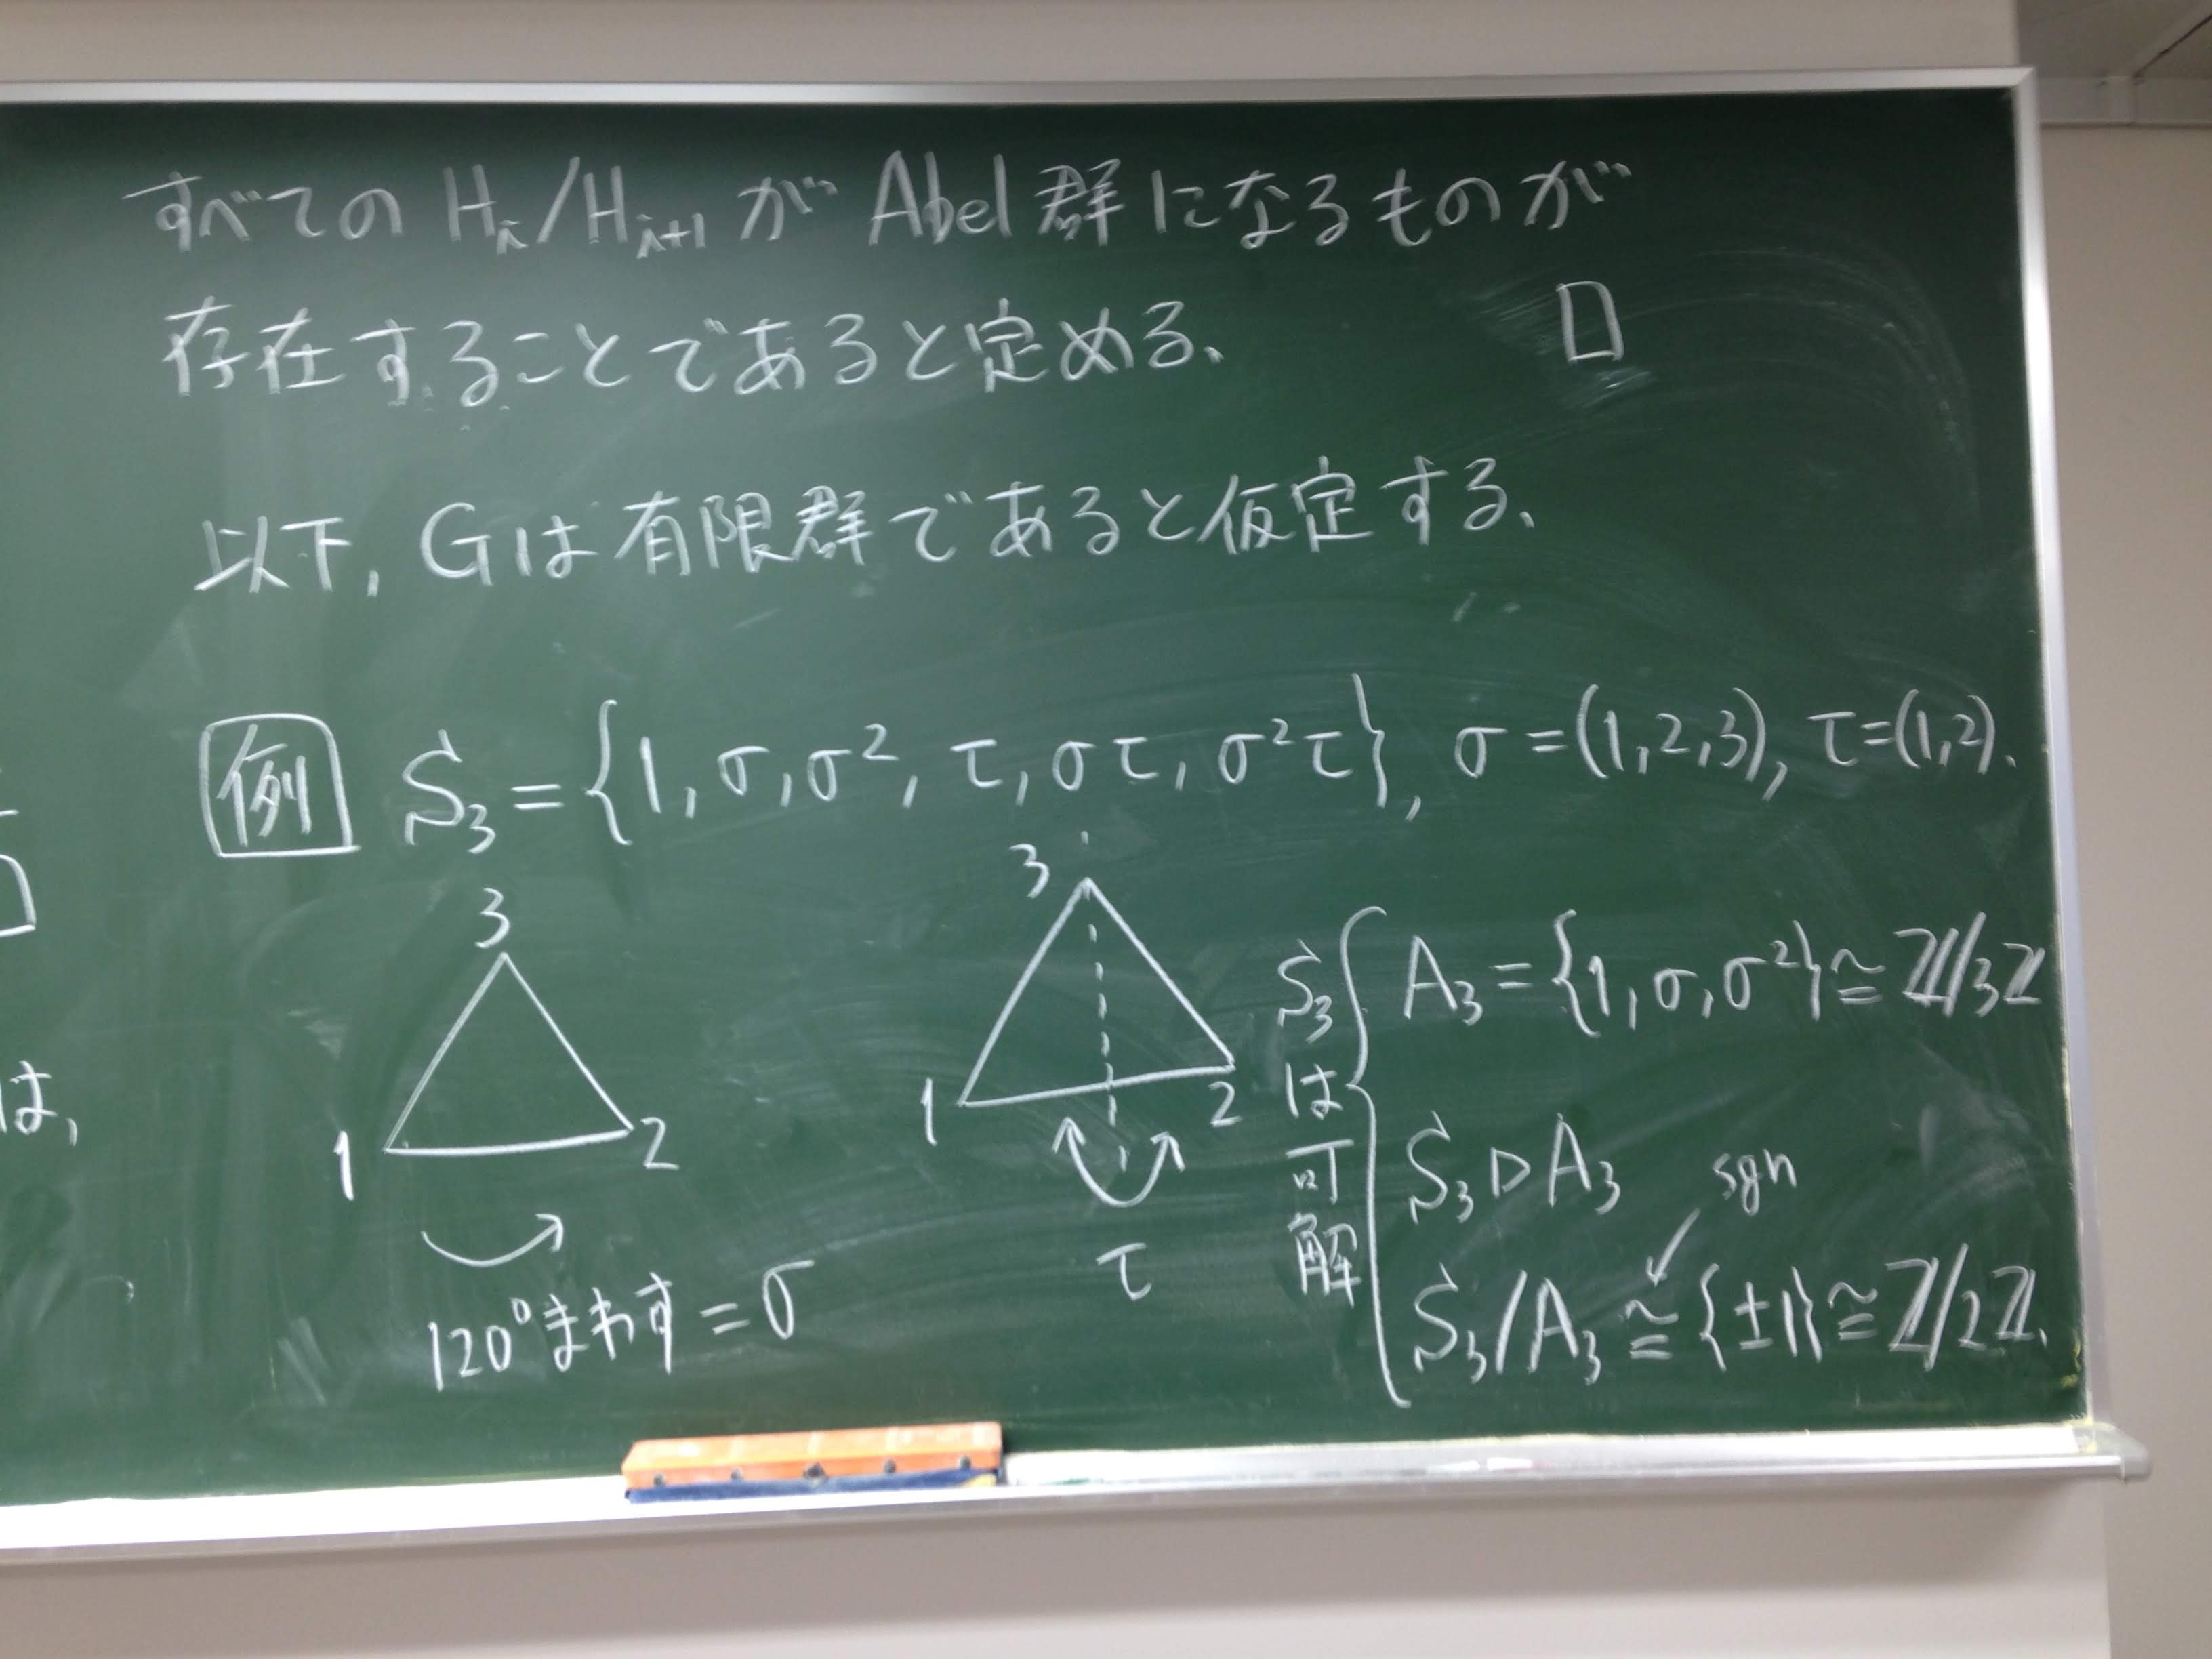 すべての H_i/H_{i+1} が Abel 群になるものが
存在することであると定める、
以下, Gは有限群であると仮定する、
例 S_3 = {1, σ, σ², τ, στ, σ²τ}, σ=(1,2,3), τ=(1,2).
3
1 2
120°まわす = σ
3
1 2
τ
S_3は可解
A_3 = {1, σ, σ²} ≅ ℤ/3ℤ
S_3 ▷ A_3
sgn
S_3/A_3 ≅ {±1} ≅ ℤ/2ℤ.
は,